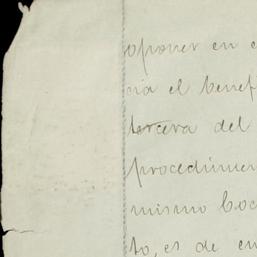 oponer en e
cia el benef
tercera del
procedimien
mismo Cod
to, es de en